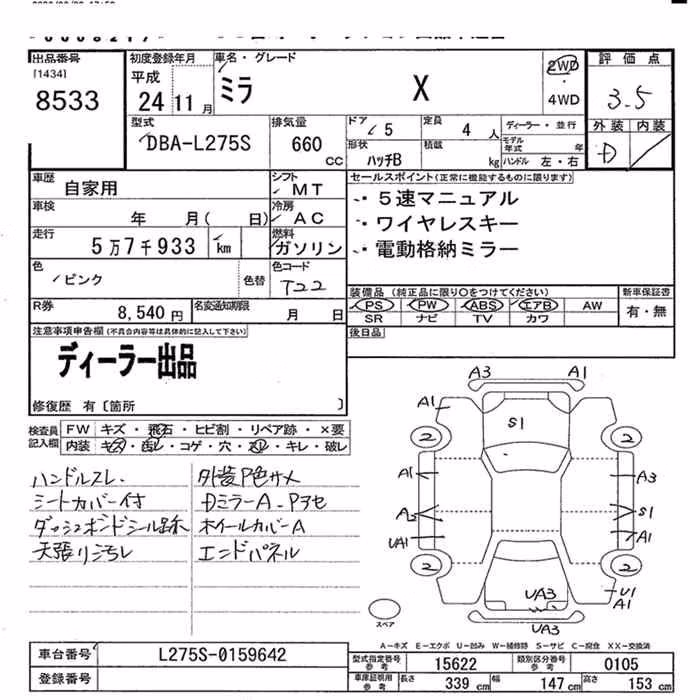 出品番号 [1434] 8533
初度登録年月 平成 24年 11月
車名・グレード ミラ X
2WD
4WD
評価点 3.5
外装 内装
D
型式 DBA-L275S
排気量 660 CC
ドア 5
定員 4 人
ディーラー・並行
形状 ハッチB
積載 kg
モデル年式 年
ハンドル 左・右
車歴 自家用
シフト MT
車検 年 月( 日)
冷房 AC
走行 5万7千933 km
燃料 ガソリン
色 ピンク 色替
色コード T22
R券 8,540円
名変通知期限 月 日
セールスポイント(正常に機能するものに限ります)
・5速マニュアル
・ワイヤレスキー
・電動格納ミラー
装備品(純正品に限り○をつけてください)
PS PW ABS エアB AW
SR ナビ TV カワ
新車保証書 有・無
後日品
注意事項申告欄(不具合内容等は具体的に記入して下さい)
ディーラー出品
修復歴 有〔箇所 〕
検査員記入欄
FW キズ・飛石・ヒビ割・リペア跡・×要
内装 キズ・コゲ・穴・キレ・破レ
ハンドルスレ.
シートカバー付
ダッシュボンドシール跡
天張り汚レ
外装P色サメ
DミラーA.Pアセ
ホイールカバーA
エンドパネル
A3 A1
A1
S1
2 2
A1 A3
A2 S1
UA1 A1
2 2
UA3
U1
A1
UA3
スペア
A－キズ E－エクボ U－凹み W－補修跡 S－サビ C－腐食 XX－交換済
車台番号 L275S-0159642
登録番号
型式指定番号 参考 15622
類別区分番号 参考 0105
車庫証明用 参考 長さ 339 cm 幅 147 cm 高さ 153 cm